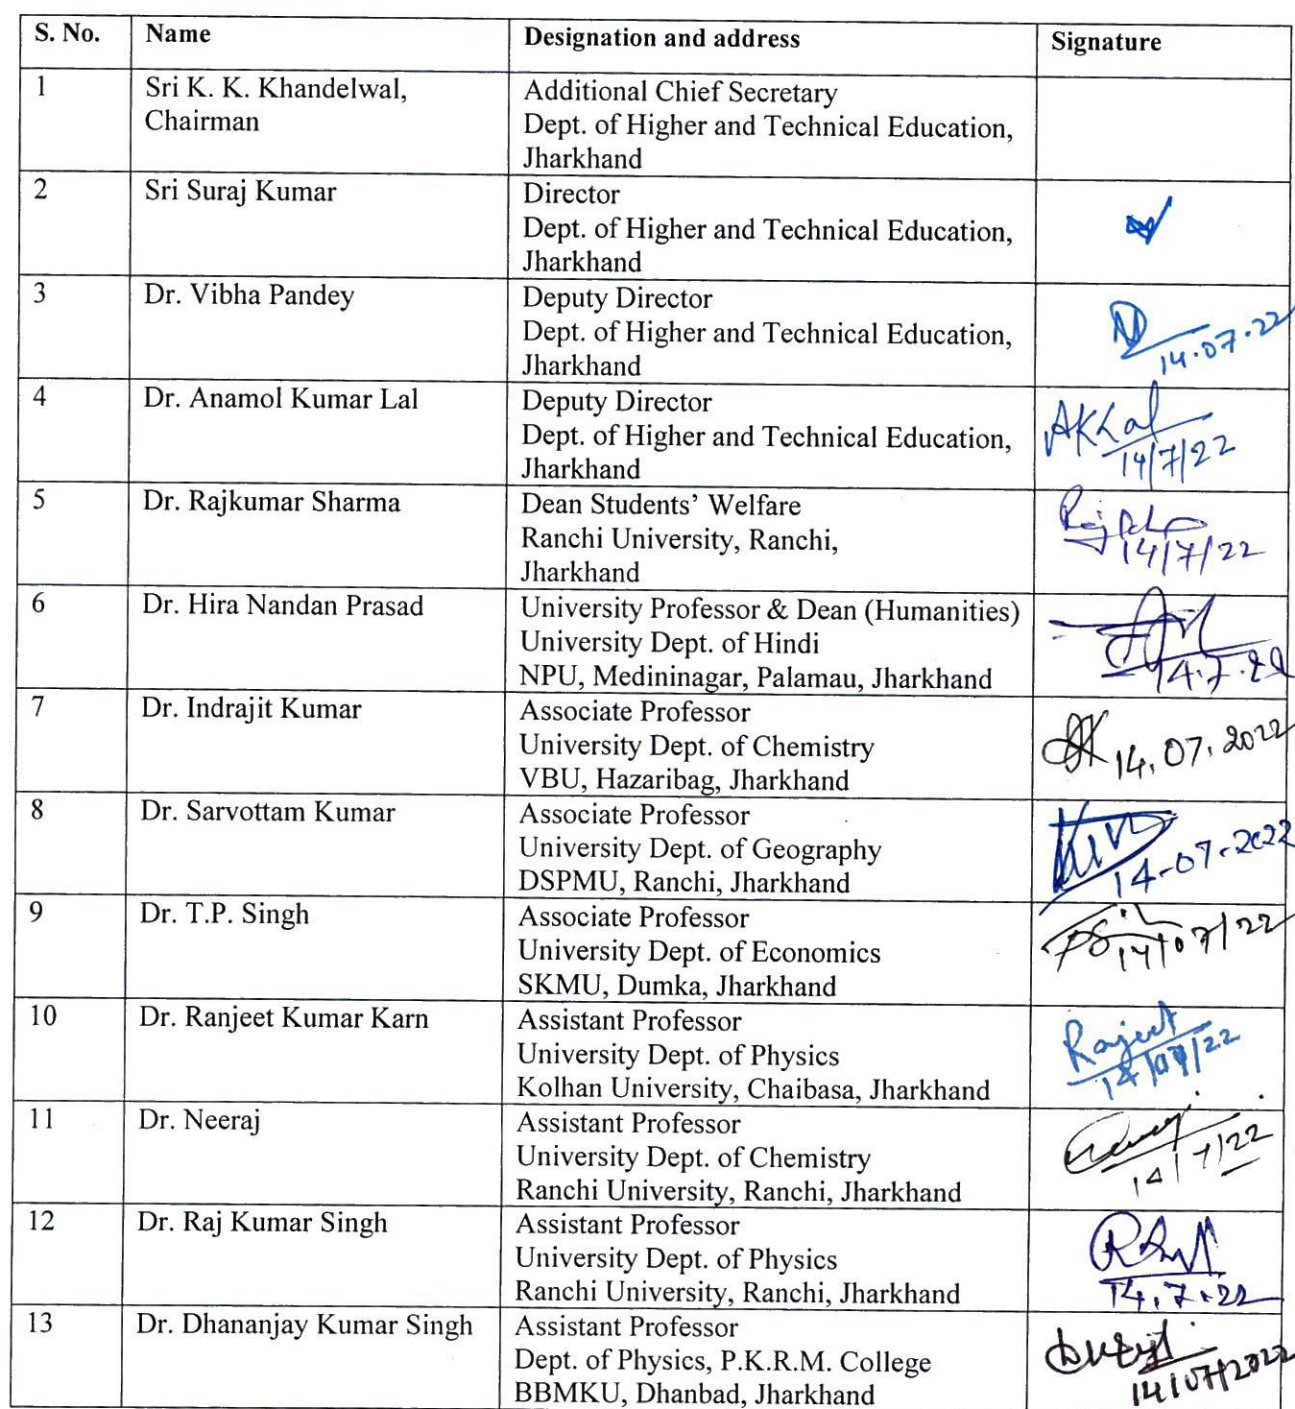 S. No. Name Designation and address Signature
1 Sri K. K. Khandelwal, Additional Chief Secretary
Chairman Dept. of Higher and Technical Education,
Jharkhand
2 Sri Suraj Kumar Director
Dept. of Higher and Technical Education,
Jharkhand
3 Dr. Vibha Pandey Deputy Director
Dept. of Higher and Technical Education,
Jharkhand 14.07.22
4 Dr. Anamol Kumar Lal Deputy Director AKLal
Dept. of Higher and Technical Education, 14/7/22
Jharkhand
5 Dr. Rajkumar Sharma Dean Students' Welfare
Ranchi University, Ranchi, 14/7/22
Jharkhand
6 Dr. Hira Nandan Prasad University Professor & Dean (Humanities)
University Dept. of Hindi
NPU, Medininagar, Palamau, Jharkhand 14.7.22
7 Dr. Indrajit Kumar Associate Professor
University Dept. of Chemistry 14.07.2022
VBU, Hazaribag, Jharkhand
8 Dr. Sarvottam Kumar Associate Professor
University Dept. of Geography 14-07-2022
DSPMU, Ranchi, Jharkhand
9 Dr. T.P. Singh Associate Professor
University Dept. of Economics 14/07/22
SKMU, Dumka, Jharkhand
10 Dr. Ranjeet Kumar Karn Assistant Professor
University Dept. of Physics Ranjeet
Kolhan University, Chaibasa, Jharkhand 14/07/22
11 Dr. Neeraj Assistant Professor
University Dept. of Chemistry
Ranchi University, Ranchi, Jharkhand 14/7/22
12 Dr. Raj Kumar Singh Assistant Professor
University Dept. of Physics
Ranchi University, Ranchi, Jharkhand 14.7.22
13 Dr. Dhananjay Kumar Singh Assistant Professor
Dept. of Physics, P.K.R.M. College
BBMKU, Dhanbad, Jharkhand 14/07/2022